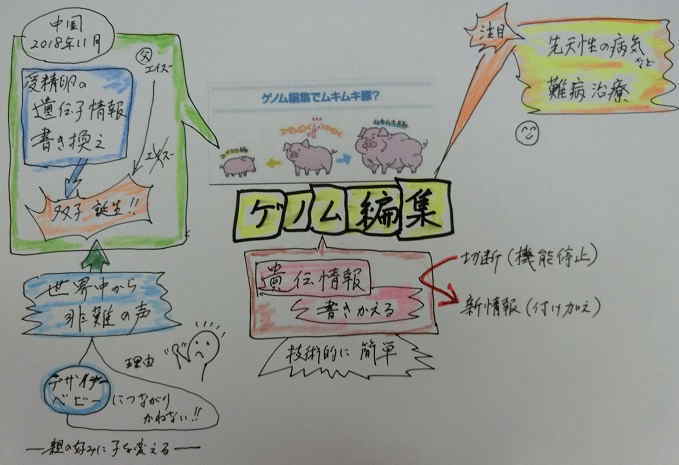 中国
2018年11月
受精卵の
遺伝子情報
書き換え
父
エイズ
エイズ
双子誕生!!
世界中から
非難の声
理由
デザイナー
ベビー
につながり
かねない!!
親の好みに子を変える
ゲノム編集でムキムキ豚?
ゲノム編集
遺伝情報
書きかえる
技術的に簡単
切断(機能停止)
新情報(付け加え)
注目
先天性の病気
など
難病治療